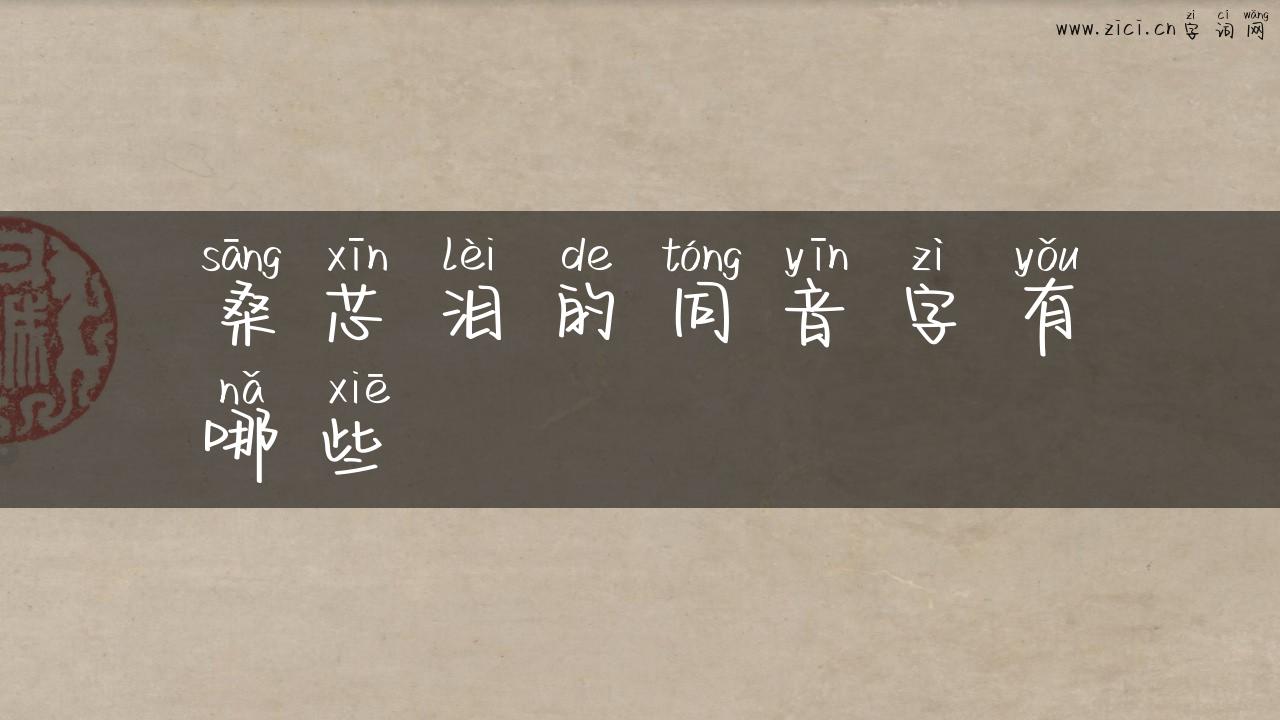 zì cí wǎng
www.zici.cn字词网
sāng xīn lèi de tóng yīn zì yǒu
桑芯泪的同音字有
nǎ xiē
哪些